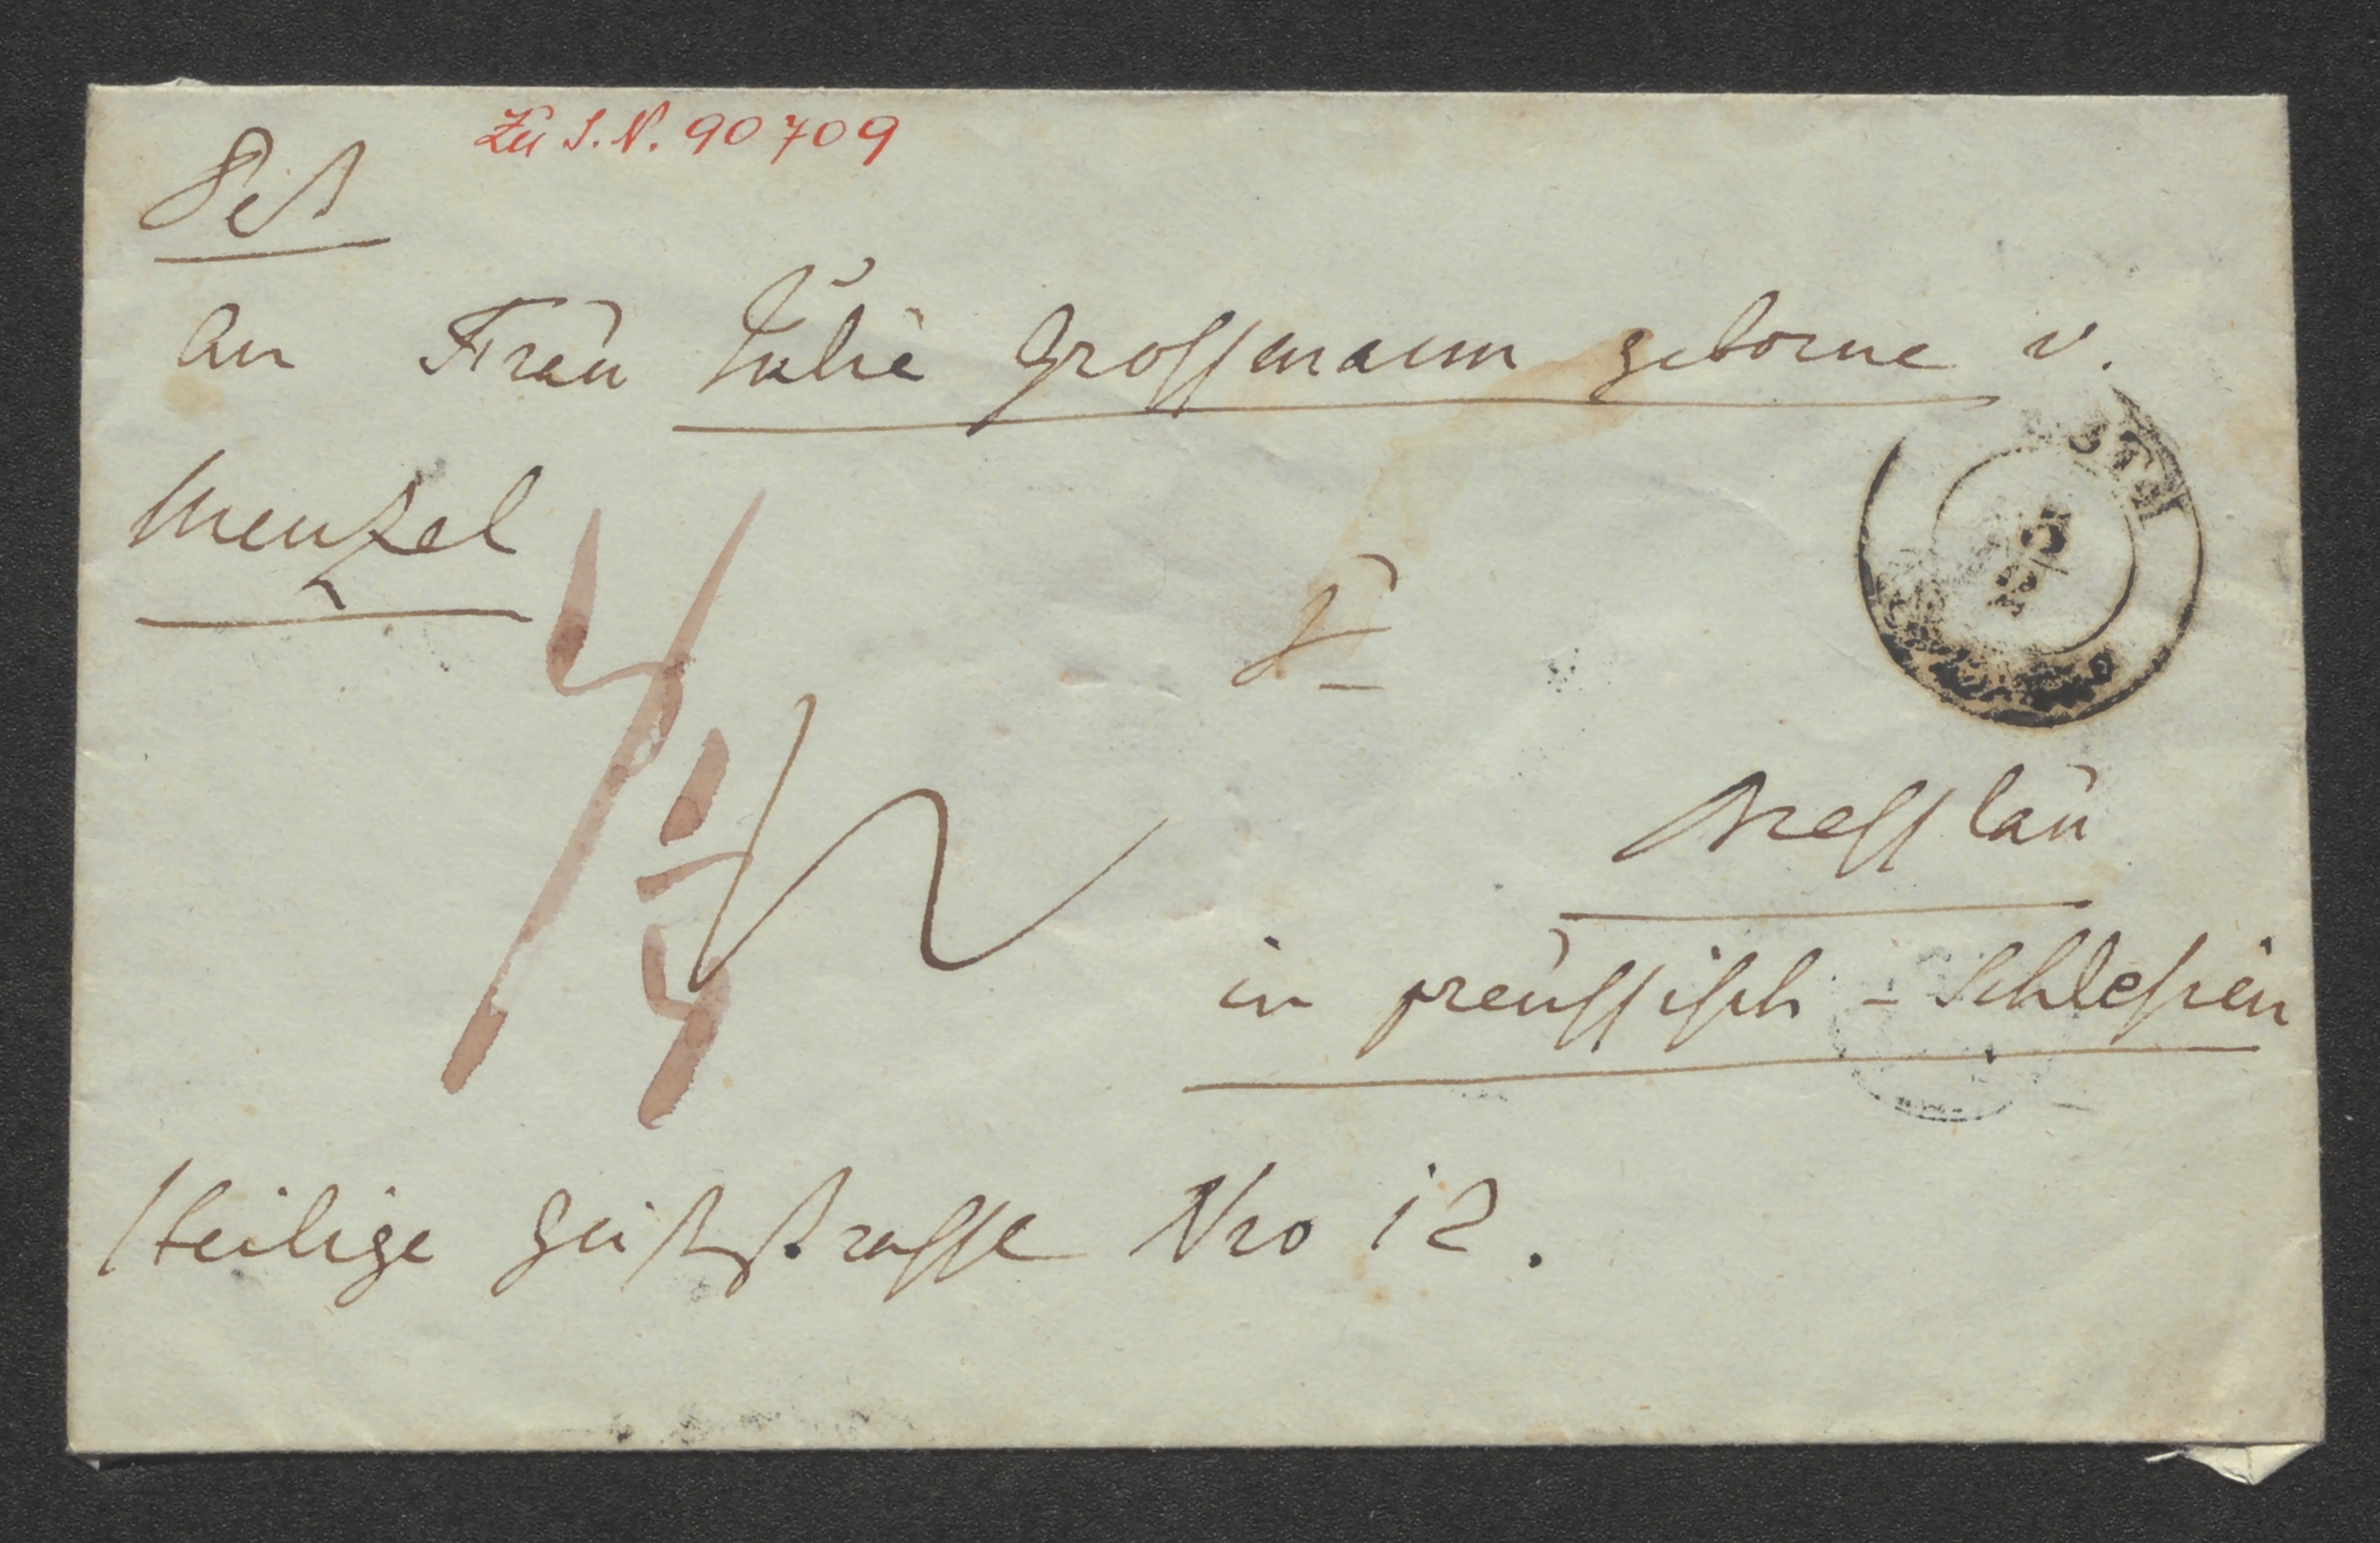 Zu I.N. 90709
Pest
An Frau Julie Grossmann geborne v.
Menzel
Bresslau
in preussisch - Schlesien
Heilige Geiststrasse Nro 12.